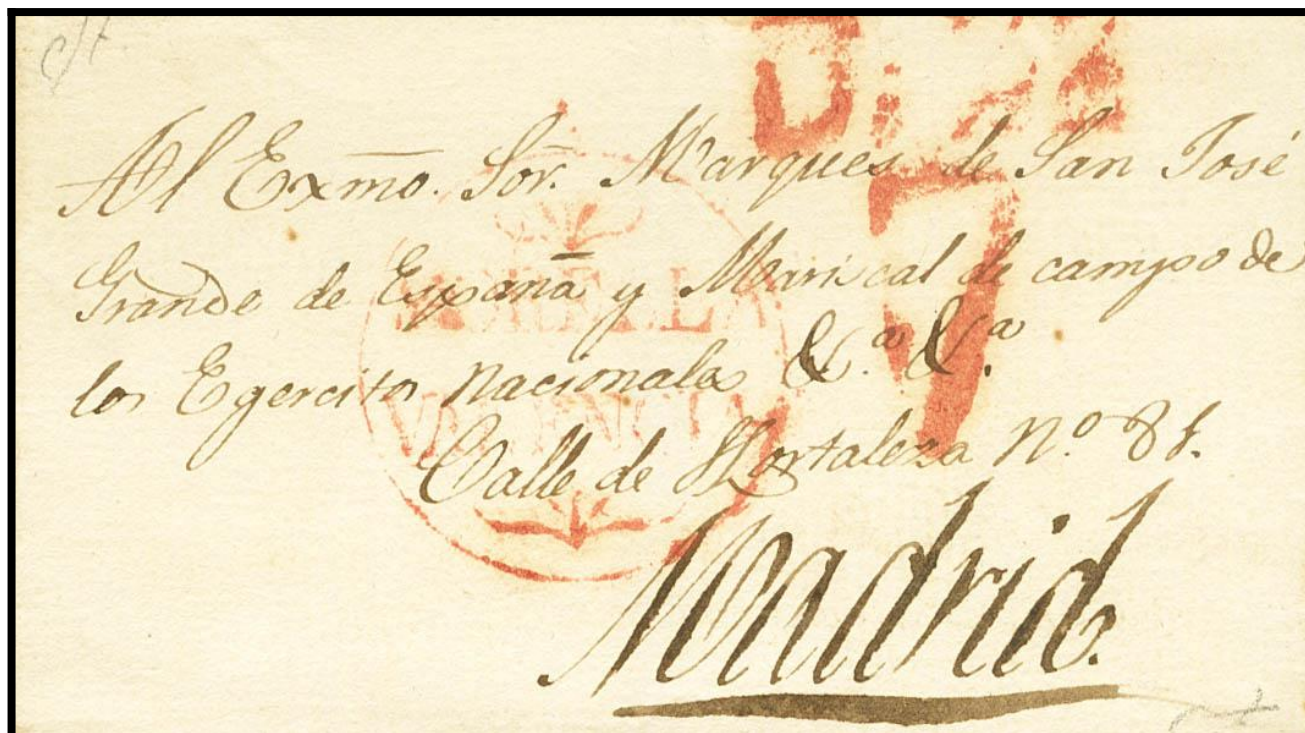 Al Exmo. Sor. Marques de San José
Grande de España y Mariscal de campo de
los Egercitos nacionales &.ª &.ª
Calle de Hortaleza Nº. 81.
Madrid.
7
VALENCIA